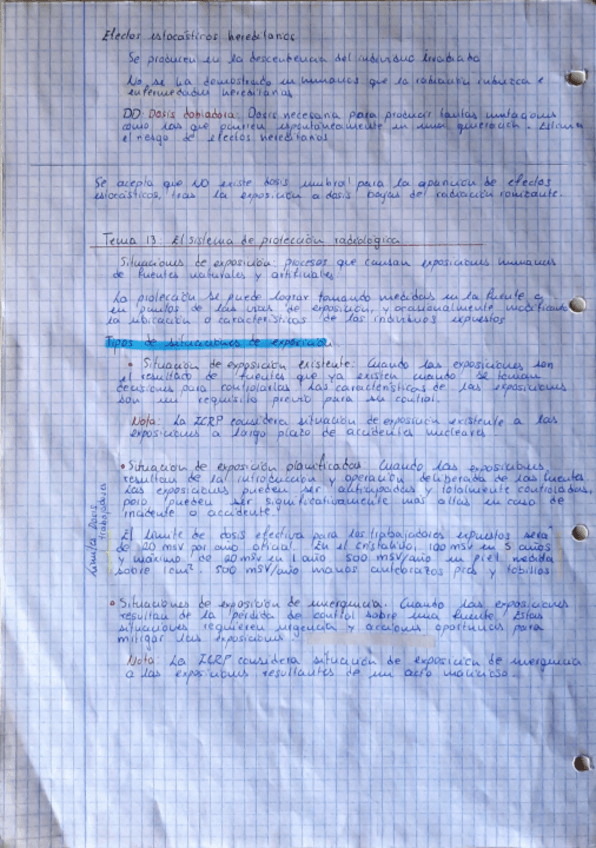 Efectos estocásticos hereditarios
Se producen en la descendencia del individuo irradiado
No se ha demostrado en humanos que la radiación induzca e
enfermedades hereditarias
DD: Dosis dobladora: Dosis necesaria para producir tantas mutaciones
como las que ocurren espontáneamente en una generación. Estima
el riesgo de efectos hereditarios
Se acepta que NO existe dosis umbral para la aparición de efectos
estocásticos, tras la exposición a dosis bajas del radiación ionizante.
Tema 13 El sistema de protección radiológica
Situaciones de exposición: procesos que causan exposiciones humanas
de fuentes naturales y artificiales
La protección se puede lograr tomando medidas en la fuente o
en puntos de las vías de exposición, y ocasionalmente modificando
la ubicación o características de los individuos expuestos
Tipos de situaciones de exposición.
• Situación de exposición existente: Cuando las exposiciones son
el resultado de fuentes que ya existen cuando se toman
decisiones para controlarlas. Las características de las exposiciones
son un requisito previo para su control.
Nota: La ICRP considera situación de exposición existente a las
exposiciones a largo plazo de accidentes nucleares
• Situación de exposición planificada. Cuando las exposiciones
resultan de la introducción y operación deliberada de las fuentes
Las exposiciones pueden ser anticipadas y totalmente controladas,
pero pueden ser significativamente más altas en caso de
incidente o accidente.
Límites Dosis
trabajadores
El límite de dosis efectiva para los trabajadores expuestos será
de 20 mSv por año oficial. En el cristalino, 100 mSv en 5 años
y máximo de 50 mSv en 1 año 500 mSv/año en piel medida
sobre 1cm². 500 mSv/año manos antebrazos pies y tobillos
• Situaciones de exposición de emergencia. Cuando las exposiciones
resultan de la pérdida de control sobre una fuente. Estas
situaciones requieren urgencia y acciones oportunas para
mitigar las exposiciones.
Nota: La ICRP considera situación de exposición de emergencia
a las exposiciones resultantes de un acto malicioso.